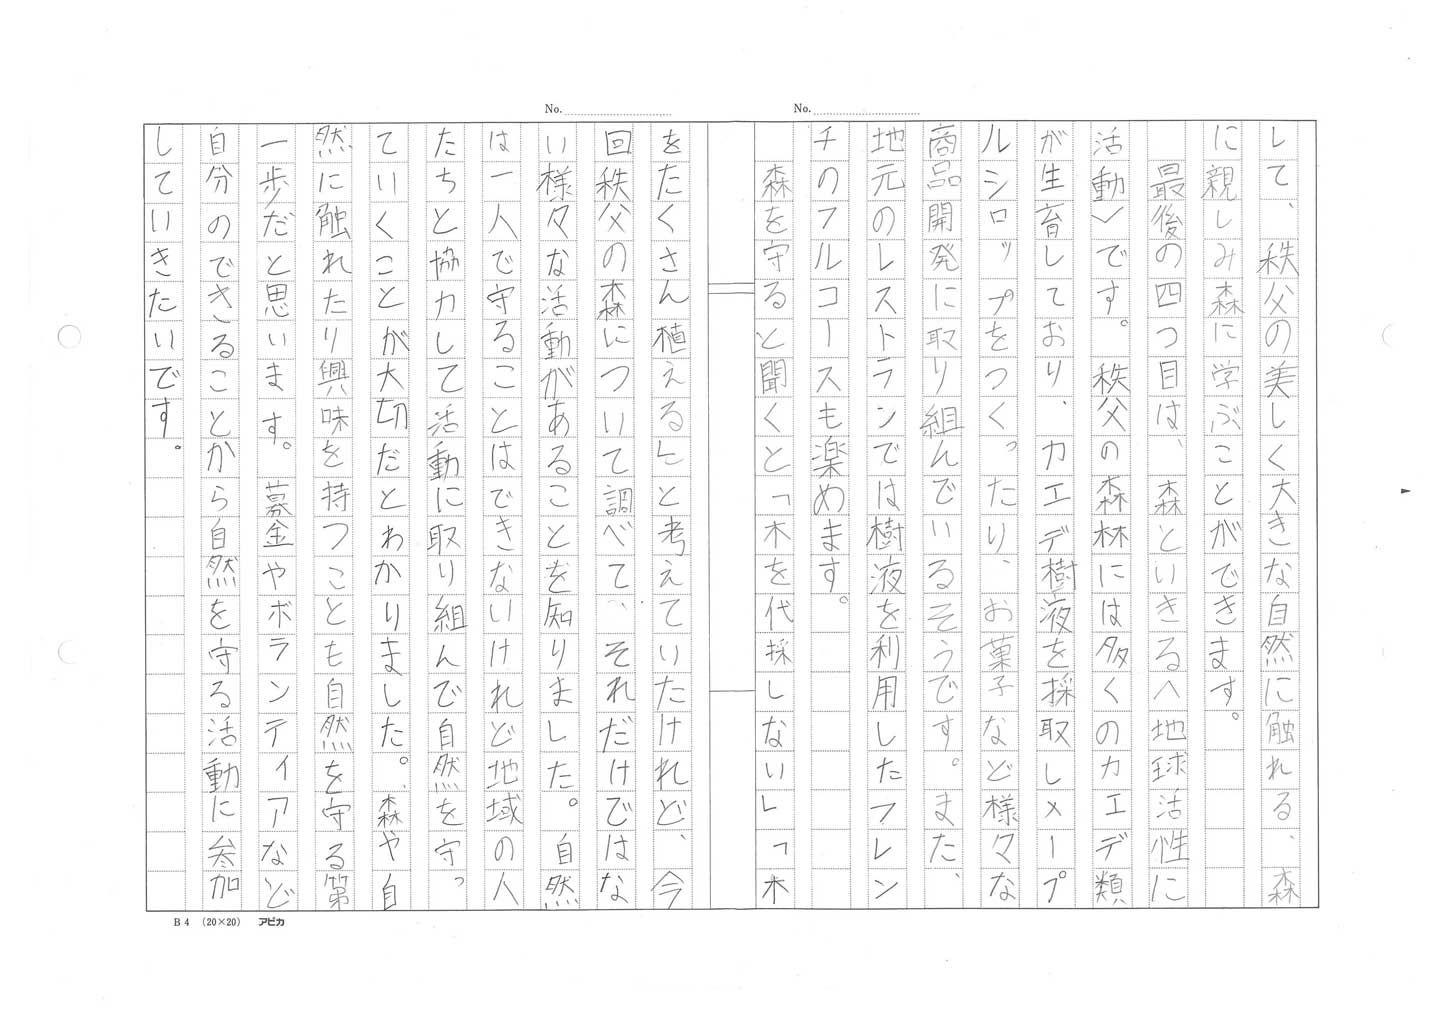 No.
No.
して、秩父の美しく大きな自然に触れる、森
に親しみ森に学ぶことができます。
最後の四つ目は、森といきるへ地球活性に
活動〉です。秩父の森林には多くのカエデ類
が生育しており、カエデ樹液を採取しメープ
ルシロップをつくったり、お菓子など様々な
商品開発に取り組んでいるそうです。また、
地元のレストランでは樹液を利用したフレン
チのフルコースも楽めます。
森を守ると聞くと「木を代採しない」「木
をたくさん植える」と考えていたけれど、今
回秩父の森について調べて、それだけではな
い様々な活動があることを知りました。自然
は一人で守ることはできないけれど地域の人
たちと協力して活動に取り組んで自然を守っ
ていくことが大切だとわかりました。森や自
然に触れたり興味を持つことも自然を守る第
一歩だと思います。募金やボランティアなど
自分のできることから自然を守る活動に参加
していきたいです。
B4 (20×20) アピカ